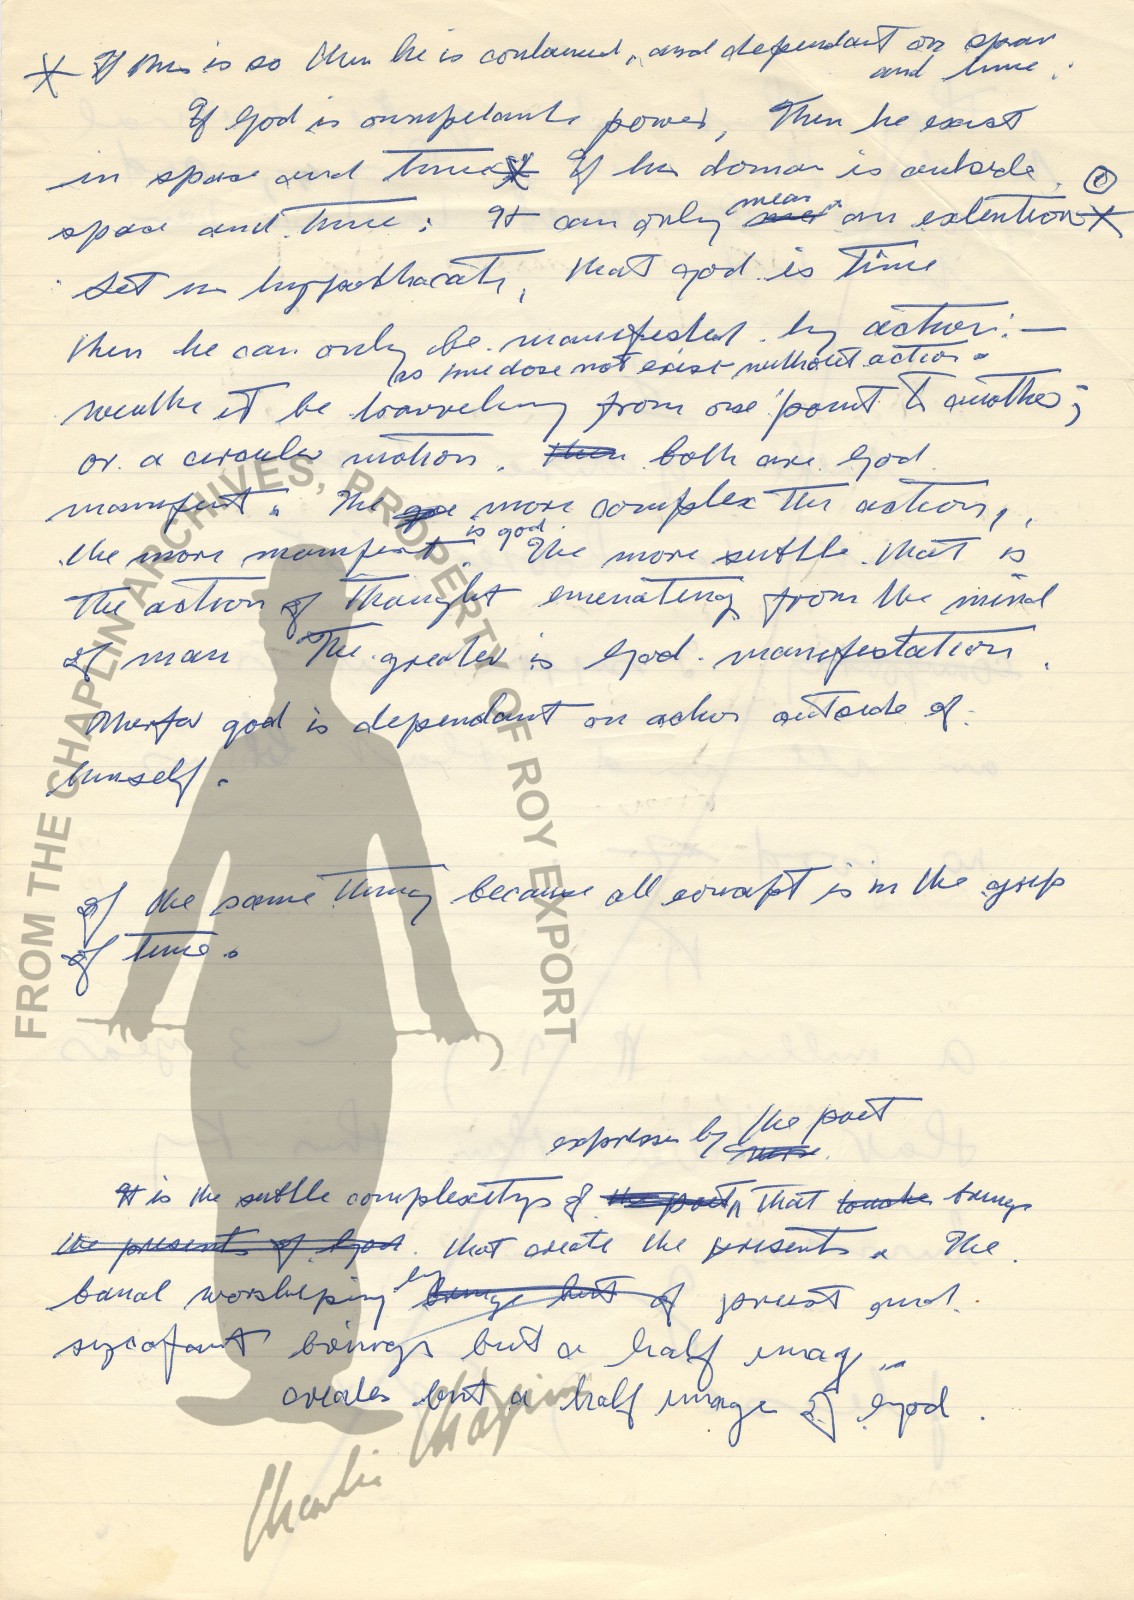 * If this is so then he is contained, and dependant on space
and time.
If God is omnipotant power, Then he exist
in space and time* If his domain is outside
space and time; It can only mean an extention*
Let us hypothacate, that god is Time
then he can only be manifested by action: —
as time dose not exist without action.
weathe it be travveling from one point to another;
or a circular motion. then both are God
manifest. The more complex the action,
the more manifest is god. The more suttle that is
the action of thought eminating from the mind
of man The greater is God manifestation.
Therfor god is dependant on action outside of
himself.
of the same thing because all concept is in the grip
of time.
expresses by the poet
It is the suttle complexitys of the poet that touche brings
the presents of God. that create the presents. The
banal worshiping by brings but of priest and
sycofant brings but a half imag
creates but a half image of God.
FROM THE CHAPLIN ARCHIVES, PROPERTY OF ROY EXPORT
Charlie Chaplin